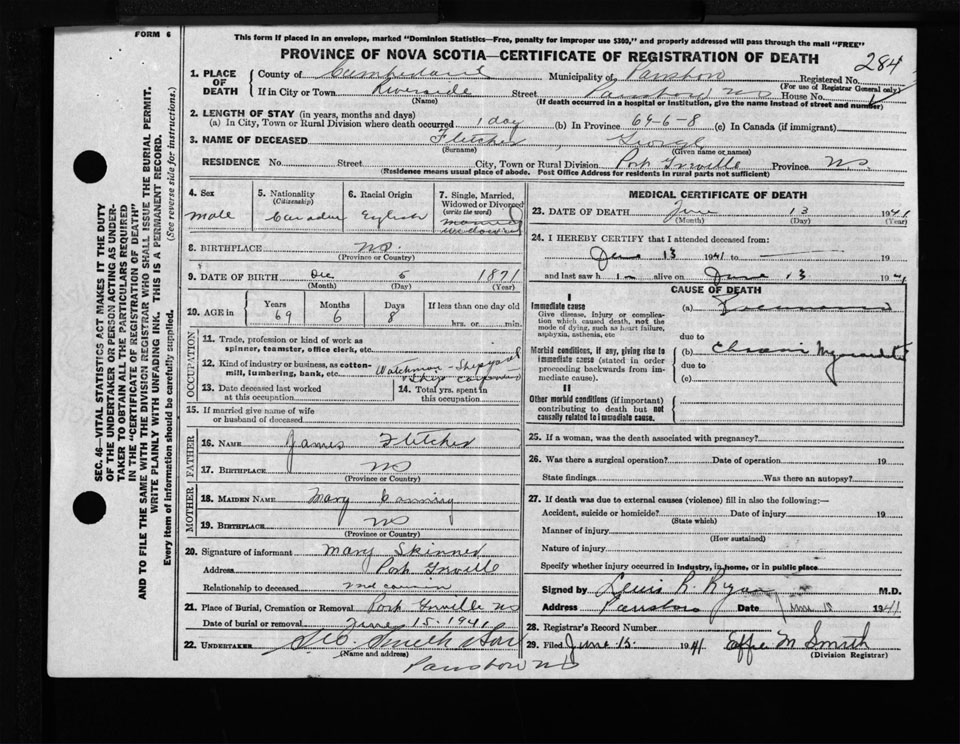 FORM 6
This form if placed in an envelope, marked "Dominion Statistics—Free, penalty for improper use $300," and properly addressed will pass through the mail "FREE"
PROVINCE OF NOVA SCOTIA—CERTIFICATE OF REGISTRATION OF DEATH
284
1. PLACE OF DEATH
County of Cumberland Municipality of Parrsboro Registered No.
(For use of Registrar General only)
If in City or Town Riverside Street Parrsboro NS House No.
(Name) (If death occurred in a hospital or institution, give the name instead of street and number)
2. LENGTH OF STAY (in years, months and days)
(a) In City, Town or Rural Division where death occurred 1 day (b) In Province 69-6-8 (c) In Canada (if immigrant)
3. NAME OF DECEASED Fletcher, George
(Surname) (Given name or names)
RESIDENCE No. Street. City, Town or Rural Division Port Greville Province NS
(Residence means usual place of abode. Post Office Address for residents in rural parts not sufficient)
4. Sex
male
5. Nationality
(Citizenship)
Canadian
6. Racial Origin
English
7. Single, Married, Widowed or Divorced
(write the word)
married
widowed
8. BIRTHPLACE NS.
(Province or Country)
9. DATE OF BIRTH Dec 5 1871
(Month) (Day) (Year)
10. AGE in Years Months Days If less than one day old
69 6 8 hrs. or min.
OCCUPATION
11. Trade, profession or kind of work as spinner, teamster, office clerk, etc.
12. Kind of industry or business, as cotton-mill, lumbering, bank, etc. Watchman - Shipyard
Ship Carpenter
13. Date deceased last worked at this occupation
14. Total yrs. spent in this occupation
15. If married give name of wife or husband of deceased
FATHER
16. NAME James Fletcher
17. BIRTHPLACE NS
(Province or Country)
MOTHER
18. MAIDEN NAME Mary Canning
19. BIRTHPLACE NS
(Province or Country)
20. Signature of informant Mary Skinner
Address Port Greville
Relationship to deceased 2nd cousin
21. Place of Burial, Cremation or Removal Port Greville NS
Date of burial or removal June 15. 1941
22. UNDERTAKER Geo. Smith
(Name and address)
Parrsboro NS
MEDICAL CERTIFICATE OF DEATH
23. DATE OF DEATH June 13 1941
(Month) (Day) (Year)
24. I HEREBY CERTIFY that I attended deceased from:
June 13 1941 to — 19
and last saw him alive on June 13 1941
CAUSE OF DEATH
I
Immediate cause
Give disease, injury or complication which caused death, not the mode of dying, such as heart failure, asphyxia, asthenia, etc
(a)
due to
Morbid conditions, if any, giving rise to immediate cause (stated in order proceeding backwards from immediate cause).
(b) Chronic Myocarditis
due to
(c)
II
Other morbid conditions (if important) contributing to death but not causally related to immediate cause.
25. If a woman, was the death associated with pregnancy?
26. Was there a surgical operation? Date of operation 19
State findings Was there an autopsy?
27. If death was due to external causes (violence) fill in also the following:—
Accident, suicide or homicide? Date of injury 19
(State which)
Manner of injury
(How sustained)
Nature of injury
Specify whether injury occurred in industry, in home, or in public place
Signed by Lewis R. Ryan M.D.
Address Parrsboro Date June 1941
28. Registrar's Record Number
29. Filed June 15. 1941 Effie M Smith
(Division Registrar)
SEC. 46—VITAL STATISTICS ACT MAKES IT THE DUTY
OF THE UNDERTAKER OR PERSON ACTING AS UNDER-
TAKER TO OBTAIN ALL THE PARTICULARS REQUIRED
IN THE "CERTIFICATE OF REGISTRATION OF DEATH"
AND TO FILE THE SAME WITH THE DIVISION REGISTRAR WHO SHALL ISSUE THE BURIAL PERMIT.
WRITE PLAINLY WITH UNFADING INK. THIS IS A PERMANENT RECORD.
Every item of information should be carefully supplied. (See reverse side for instructions.)